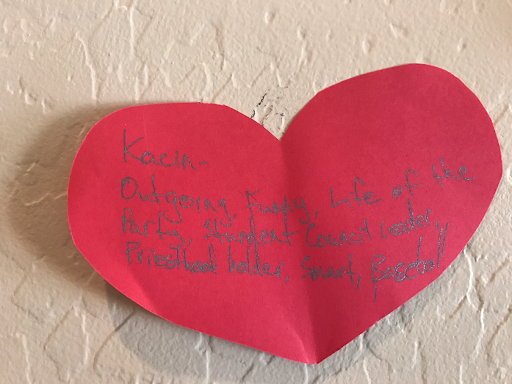 Kacin-
Outgoing, Funny, Life of the
Party, Student Council Leader,
Priesthood holder, Smart, Baseball